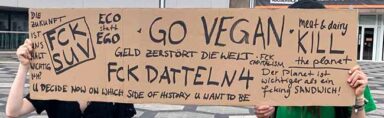 DIE
ZUKUNFT
IST
UNS
NICHT
WICHTIG
FCK
SUV
ECO
statt
EGO
· GO VEGAN ·
GELD ZERSTÖRT DIE WELT
FCK DATTELN 4
meat & dairy
KILL
the planet
FCK
Der Planet ist
wichtiger als ein
fcking SANDWICH!
U DECIDE NOW ON WHICH SIDE OF HISTORY U WANT TO BE